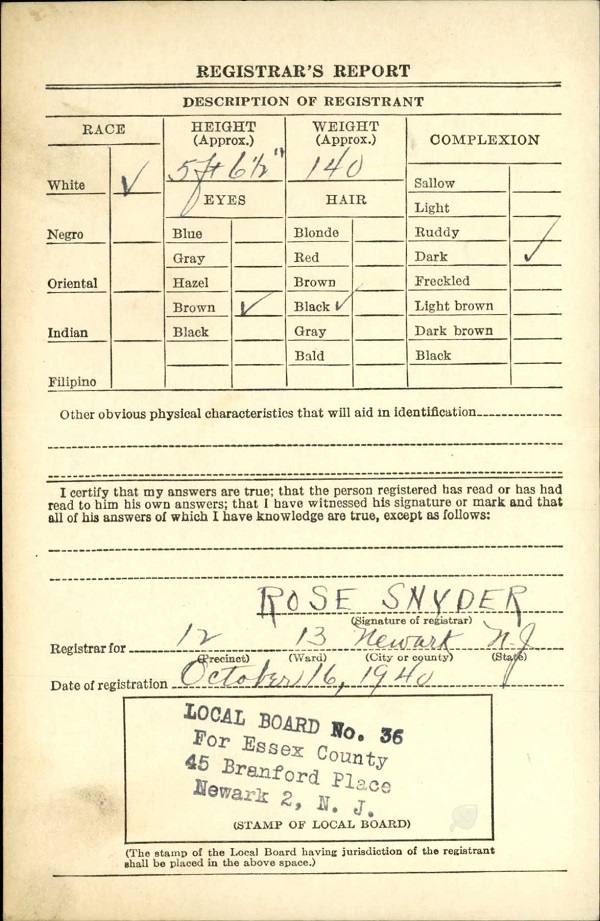 REGISTRAR'S REPORT
DESCRIPTION OF REGISTRANT
RACE
HEIGHT
(Approx.)
WEIGHT
(Approx.)
COMPLEXION
5 ft 6 1/2"
140
White ✓
EYES
HAIR
Sallow
Light
Negro
Blue
Blonde
Ruddy
Gray
Red
Dark ✓
Oriental
Hazel
Brown
Freckled
Brown ✓
Black ✓
Light brown
Indian
Black
Gray
Dark brown
Bald
Black
Filipino
Other obvious physical characteristics that will aid in identification
I certify that my answers are true; that the person registered has read or has had
read to him his own answers; that I have witnessed his signature or mark and that
all of his answers of which I have knowledge are true, except as follows:
ROSE SNYDER
(Signature of registrar)
Registrar for 12 13 Newark N.J.
(Precinct) (Ward) (City or county) (State)
Date of registration October 16, 1940
LOCAL BOARD No. 36
For Essex County
45 Branford Place
Newark 2, N. J.
(STAMP OF LOCAL BOARD)
(The stamp of the Local Board having jurisdiction of the registrant
shall be placed in the above space.)